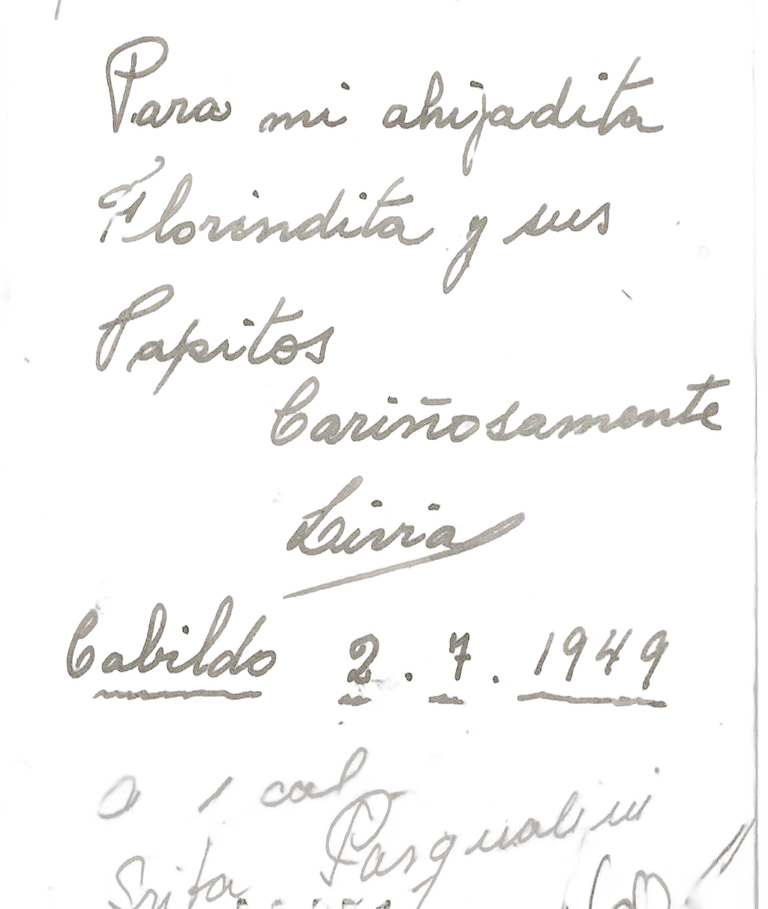 Para mi ahijadita
Florindita y sus
Papitos
Cariñosamente
Livia
Cabildo 2.7.1949
a 1 col
Pasqualini
Srita